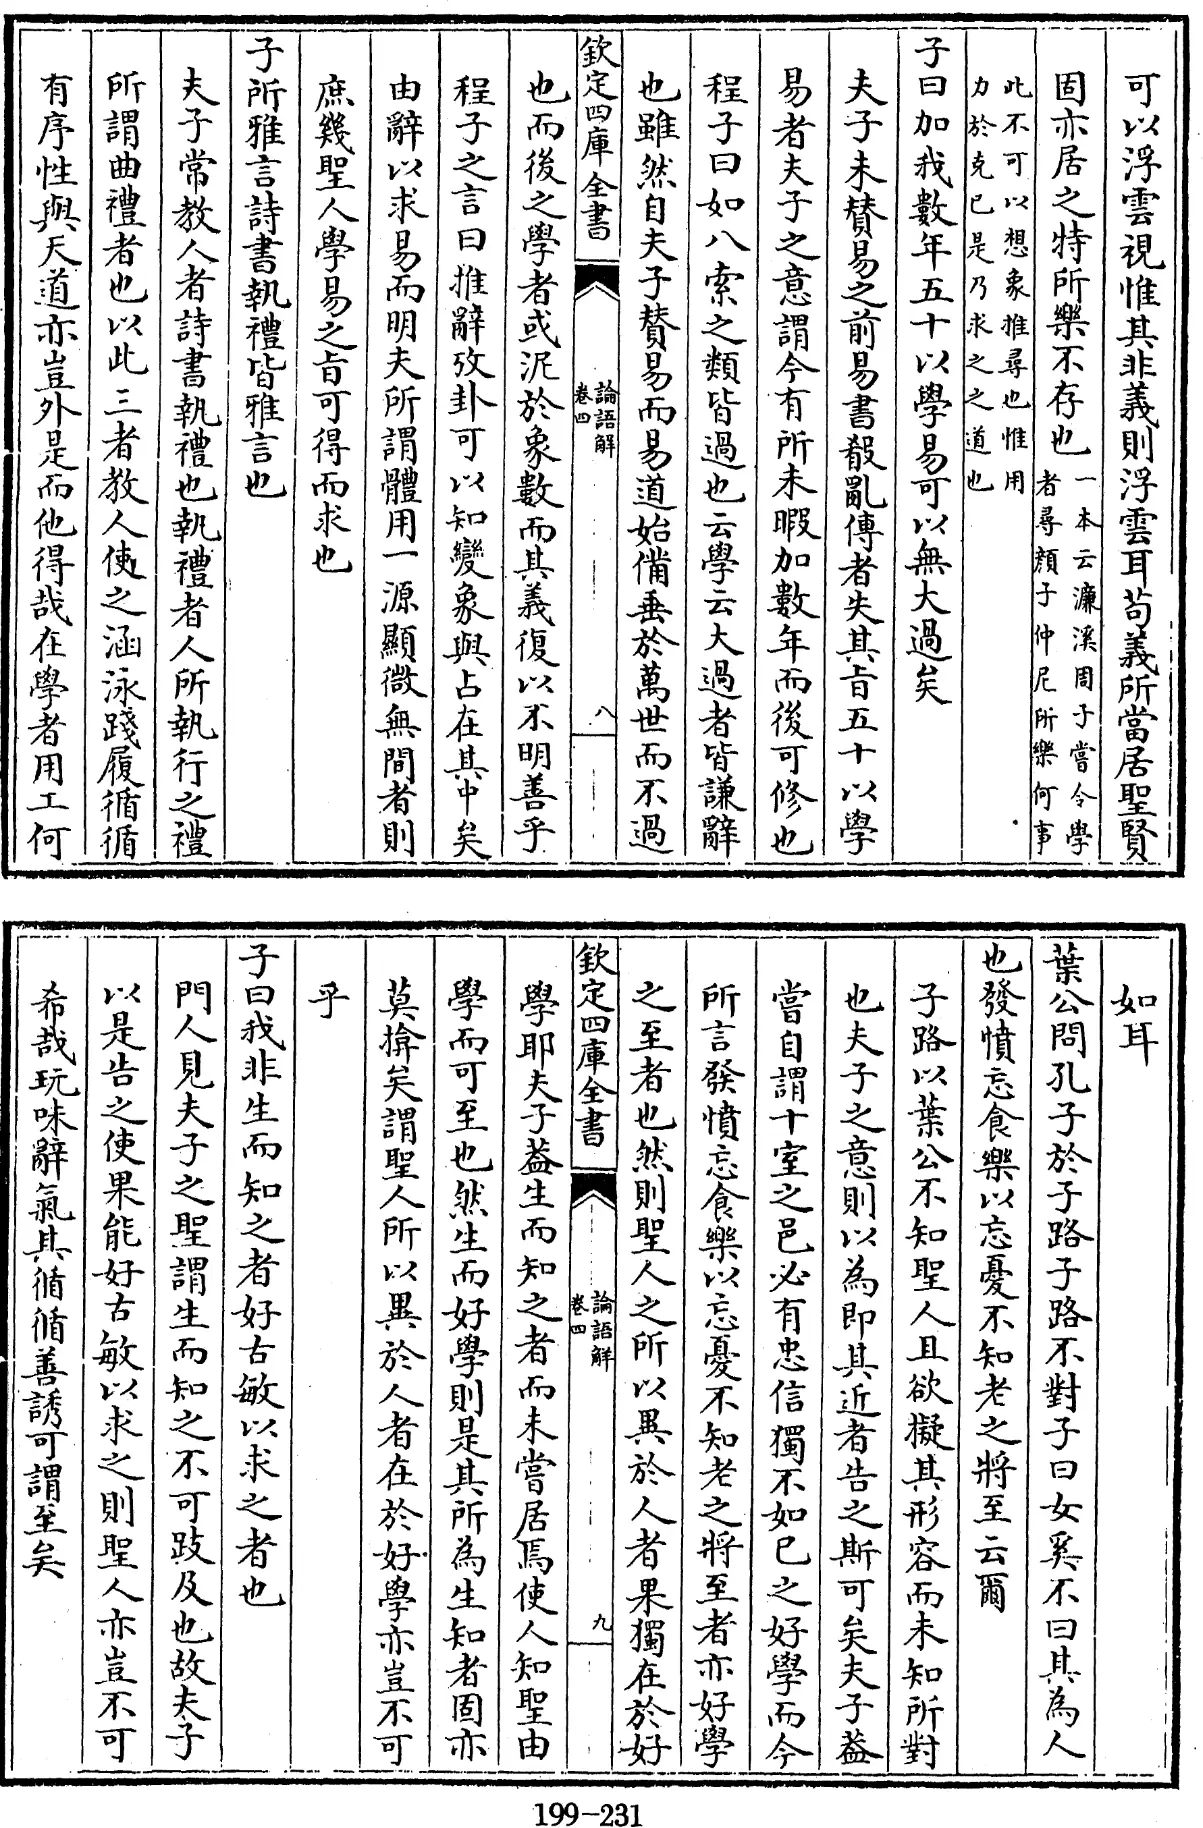 可以浮雲視惟其非義則浮雲耳苟義所當居聖賢
固亦居之特所樂不存也一本云濂溪周子嘗令學
者尋顏子仲尼所樂何事
此不可以想象推尋也惟用
力於克已是乃求之之道也
子曰加我數年五十以學易可以無大過矣
夫子未賛易之前易書殽亂傳者失其旨五十以學
易者夫子之意謂今有所未暇加數年而後可修也
程子曰如八索之類皆過也云學云大過者皆謙辭
也雖然自夫子賛易而易道始備垂於萬世而不過
欽定四庫全書
論語解
卷四
八
也而後之學者或泥於象數而其義復以不明善乎
程子之言曰推辭攷卦可以知變象與占在其中矣
由辭以求易而明夫所謂體用一源顯微無間者則
庶幾聖人學易之旨可得而求也
子所雅言詩書執禮皆雅言也
夫子常教人者詩書執禮也執禮者人所執行之禮
所謂曲禮者也以此三者教人使之涵泳踐履循循
有序性與天道亦豈外是而他得哉在學者用工何
如耳
葉公問孔子於子路子路不對子曰女奚不曰其為人
也發憤忘食樂以忘憂不知老之將至云爾
子路以葉公不知聖人且欲擬其形容而未知所對
也夫子之意則以為即其近者告之斯可矣夫子蓋
嘗自謂十室之邑必有忠信獨不如已之好學而今
所言發憤忘食樂以忘憂不知老之將至者亦好學
之至者也然則聖人之所以異於人者果獨在於好
欽定四庫全書
論語解
卷四
九
學耶夫子蓋生而知之者而未嘗居焉使人知聖由
學而可至也然生而好學則是其所為生知者固亦
莫揜矣謂聖人所以異於人者在於好學亦豈不可
乎
子曰我非生而知之者好古敏以求之者也
門人見夫子之聖謂生而知之不可跂及也故夫子
以是告之使果能好古敏以求之則聖人亦豈不可
希哉玩味辭氣其循循善誘可謂至矣
199-231